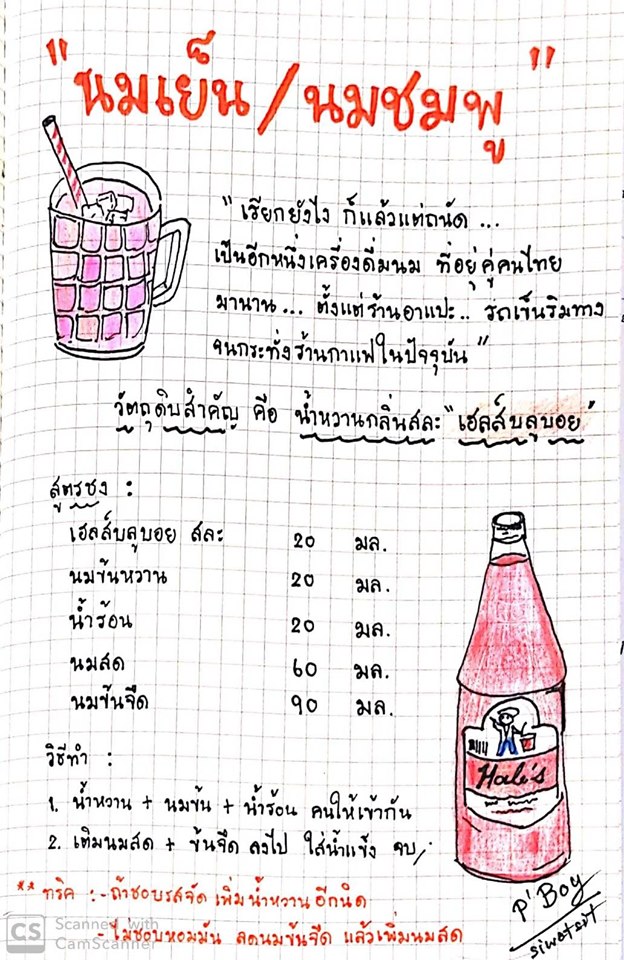 "นมเย็น/นมชมพู"
"เรียกยังไง ก็แล้วแต่ถนัด ...
เป็นอีกหนึ่งเครื่องดื่มนม ที่อยู่คู่คนไทย
มานาน... ตั้งแต่ร้านอาแปะ.. รถเข็นริมทาง
จนกระทั่งร้านกาแฟในปัจจุบัน"
วัตถุดิบสำคัญ คือ น้ำหวานกลิ่นสละ "เฮลส์บลูบอย"
สูตรชง :
เฮลส์บลูบอย สละ 20 มล.
นมข้นหวาน 20 มล.
น้ำร้อน 20 มล.
นมสด 60 มล.
นมข้นจืด 90 มล.
Hale's
วิธีทำ :
1. น้ำหวาน + นมข้น + น้ำร้อน คนให้เข้ากัน
2. เติมนมสด + ข้นจืด ลงไป ใส่น้ำแข็ง จบ
** ทริค :- ถ้าชอบรสจัด เพิ่มน้ำหวานอีกนิด
- ไม่ชอบหอมมัน ลดนมข้นจืด แล้วเพิ่มนมสด
P'Boy
siwatsit
CS Scanned with
CamScanner